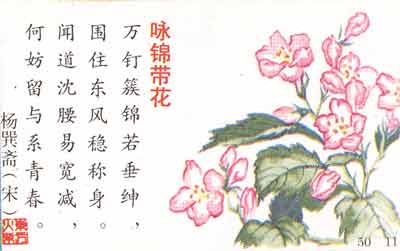 咏锦带花
万钉簇锦若垂绅，
围住东风稳称身。
闻道沈腰易宽减，
何妨留与系青春。
杨巽斋（宋）
50 11